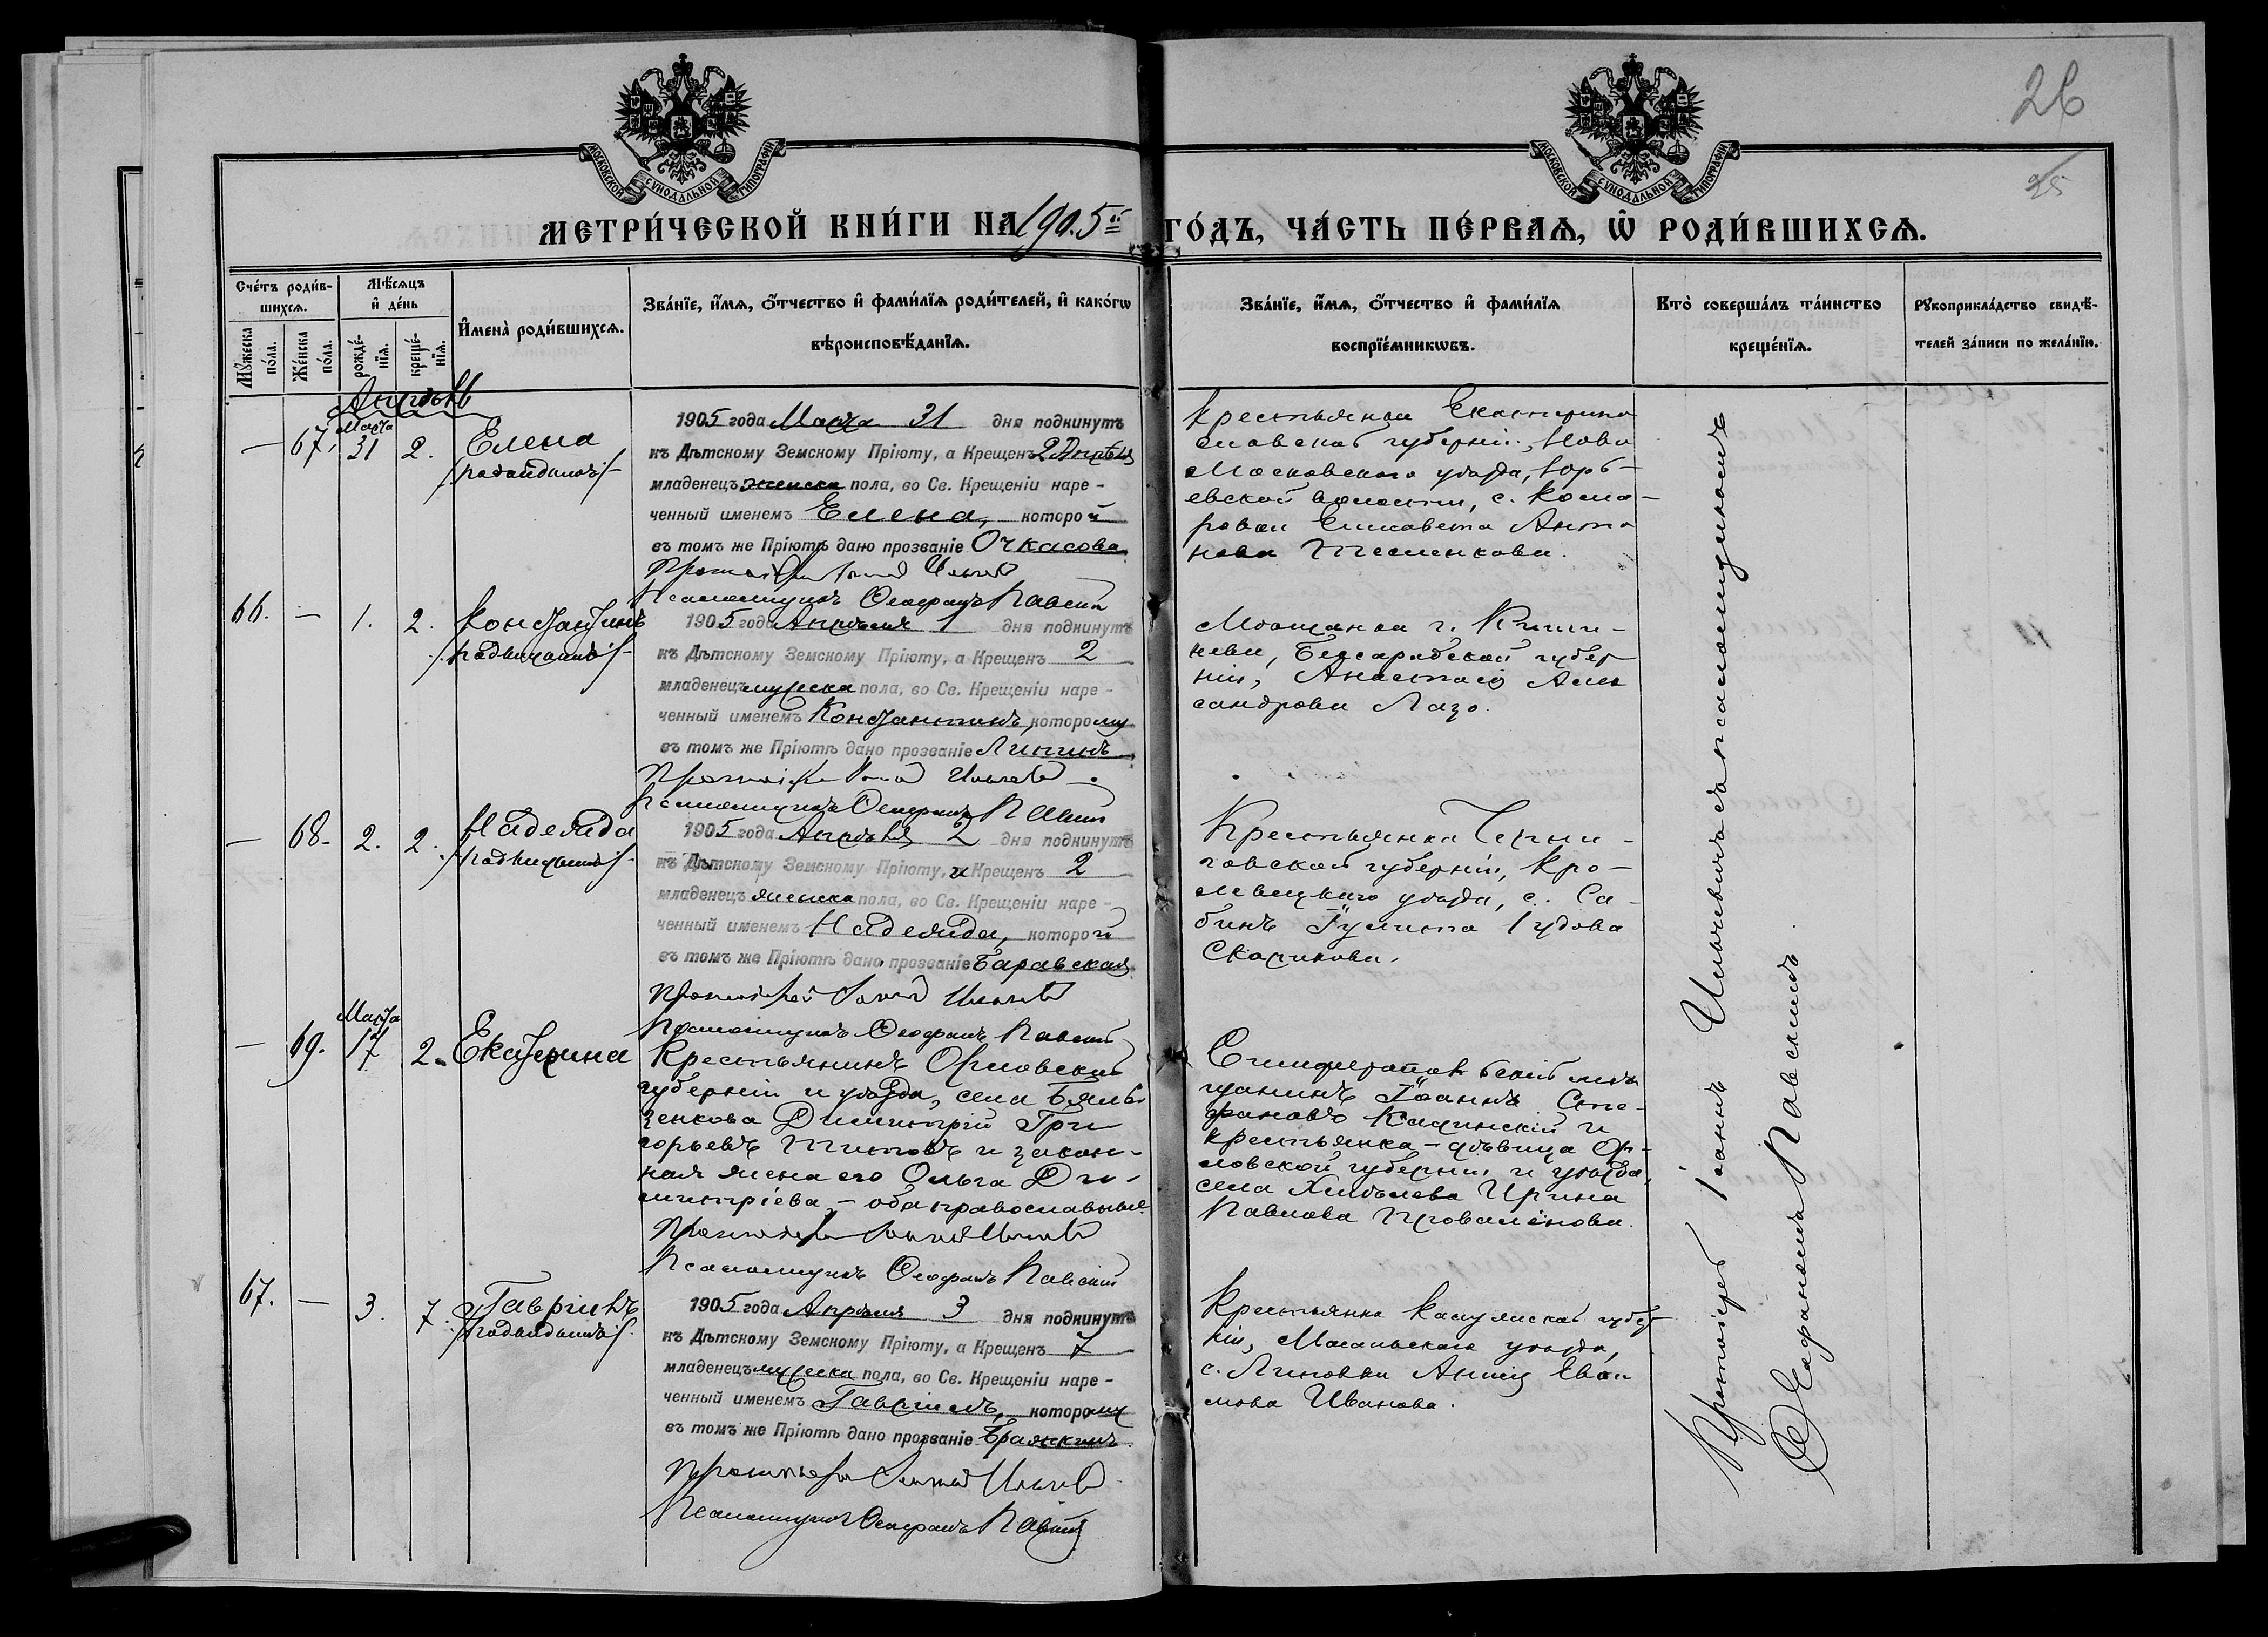 26
25
МОСКОВСКОЙ СѴНОДАЛЬНОЙ ТИПОГРАФІИ
МОСКОВСКОЙ СѴНОДАЛЬНОЙ ТИПОГРАФІИ
МЕТРИ́ЧЕСКОЙ КНИ́ГИ НА 1905 й ГО́ДЪ, ЧА́СТЬ ПЕ́РВАѦ, Ѡ҆ РОДИ́ВШИХСѦ.
Сче́тъ роди́в-
шихсѧ.
Мѣ́сѧцъ
и҆ де́нь
Мꙋ́жеска
по́ла.
Же́нска
по́ла.
рожде́-
нїѧ.
креще́-
нїѧ.
И҆мена̀ роди́вшихсѧ.
Зва́нїе, и҆́мѧ, ѻ҆́тчество и҆ фами́лїѧ роди́телей, и҆ како́гѡ
вѣроисповѣ́данїѧ.
Зва́нїе, и҆́мѧ, ѻ҆́тчество и҆ фами́лїѧ
воспрїе́мникѡвъ.
Кто̀ соверша́лъ та́инство
креще́нїѧ.
Рꙋкоприкла́дство свидѣ́-
телей за́писи по жела́нїю.
Апрѣль
— 67. Марта 31 2. Елена
1905 года Марта 31 дня подкинутъ
къ Дѣтскому Земскому Пріюту, а Крещенъ 2 Апрѣля
младенецъ женска пола, во Св. Крещеніи наре-
ченный именемъ Елена, которой
въ томъ же Пріютѣ дано прозваніе Очкасова
Псаломщикъ Ѳеофанъ Павскій
Крестьянка Екатерино
славской губерніи, Ново
Московскаго уѣзда, Юрь-
евской волости, с. Кома-
ровки Елисавета Анто
нова Тесленкова.
66. — 1. 2. Константинъ
1905 года Апрѣля 1 дня подкинутъ
къ Дѣтскому Земскому Пріюту, а Крещенъ 2
младенецъ мужеска пола, во Св. Крещеніи наре-
ченный именемъ Константинъ, которому
въ томъ же Пріютѣ дано прозваніе Липинъ
Псаломщикъ Ѳеофанъ Павскій
Мѣщанка г. Киши-
нева, Бессарабской губер
ніи, Анастасія Алек
сандрова Лазо.
— 68. 2. 2. Надежда
1905 года Апрѣля 2 дня подкинутъ
къ Дѣтскому Земскому Пріюту, и Крещенъ 2
младенецъ женска пола, во Св. Крещеніи наре-
ченный именемъ Надежда, которой
въ томъ же Пріютѣ дано прозваніе Баравская
Псаломщикъ Ѳеофанъ Павскій
Крестьянка Черни-
говской губерніи, Кро-
левецкаго уѣзда, с. Са-
Скапикова.
— 69. Марта 17 2. Екатерина
Крестьянинъ Орловской
губерніи и уѣзда, села
Димитрій Гри
горьевъ Титовъ и закон-
ная жена его Ольга Ди-
митріева, — оба православные.
Псаломщикъ Ѳеофанъ Павскій
Симферопольскій мѣ
щанинъ Іоаннъ Сте-
фановъ Качинскій и
крестьянка-дѣвица Ор-
ловской губерніи и уѣзда,
села Ирина
Павлова Проваленова.
67. — 3. 7. Гавріилъ
1905 года Апрѣля 3 дня подкинутъ
къ Дѣтскому Земскому Пріюту, а Крещенъ 7
младенецъ мужеска пола, во Св. Крещеніи наре-
ченный именемъ Гавріилъ, которому
въ томъ же Пріютѣ дано прозваніе Бражкинъ
Псаломщикъ Ѳеофанъ Павскій
Крестьянка Калужской губер
ніи, Масальскаго уѣзда,
с. Липовки Анна
Иванова.
Протоіерей Іоаннъ Ильичевъ съ псаломщикомъ
Ѳеофаномъ Павскимъ.